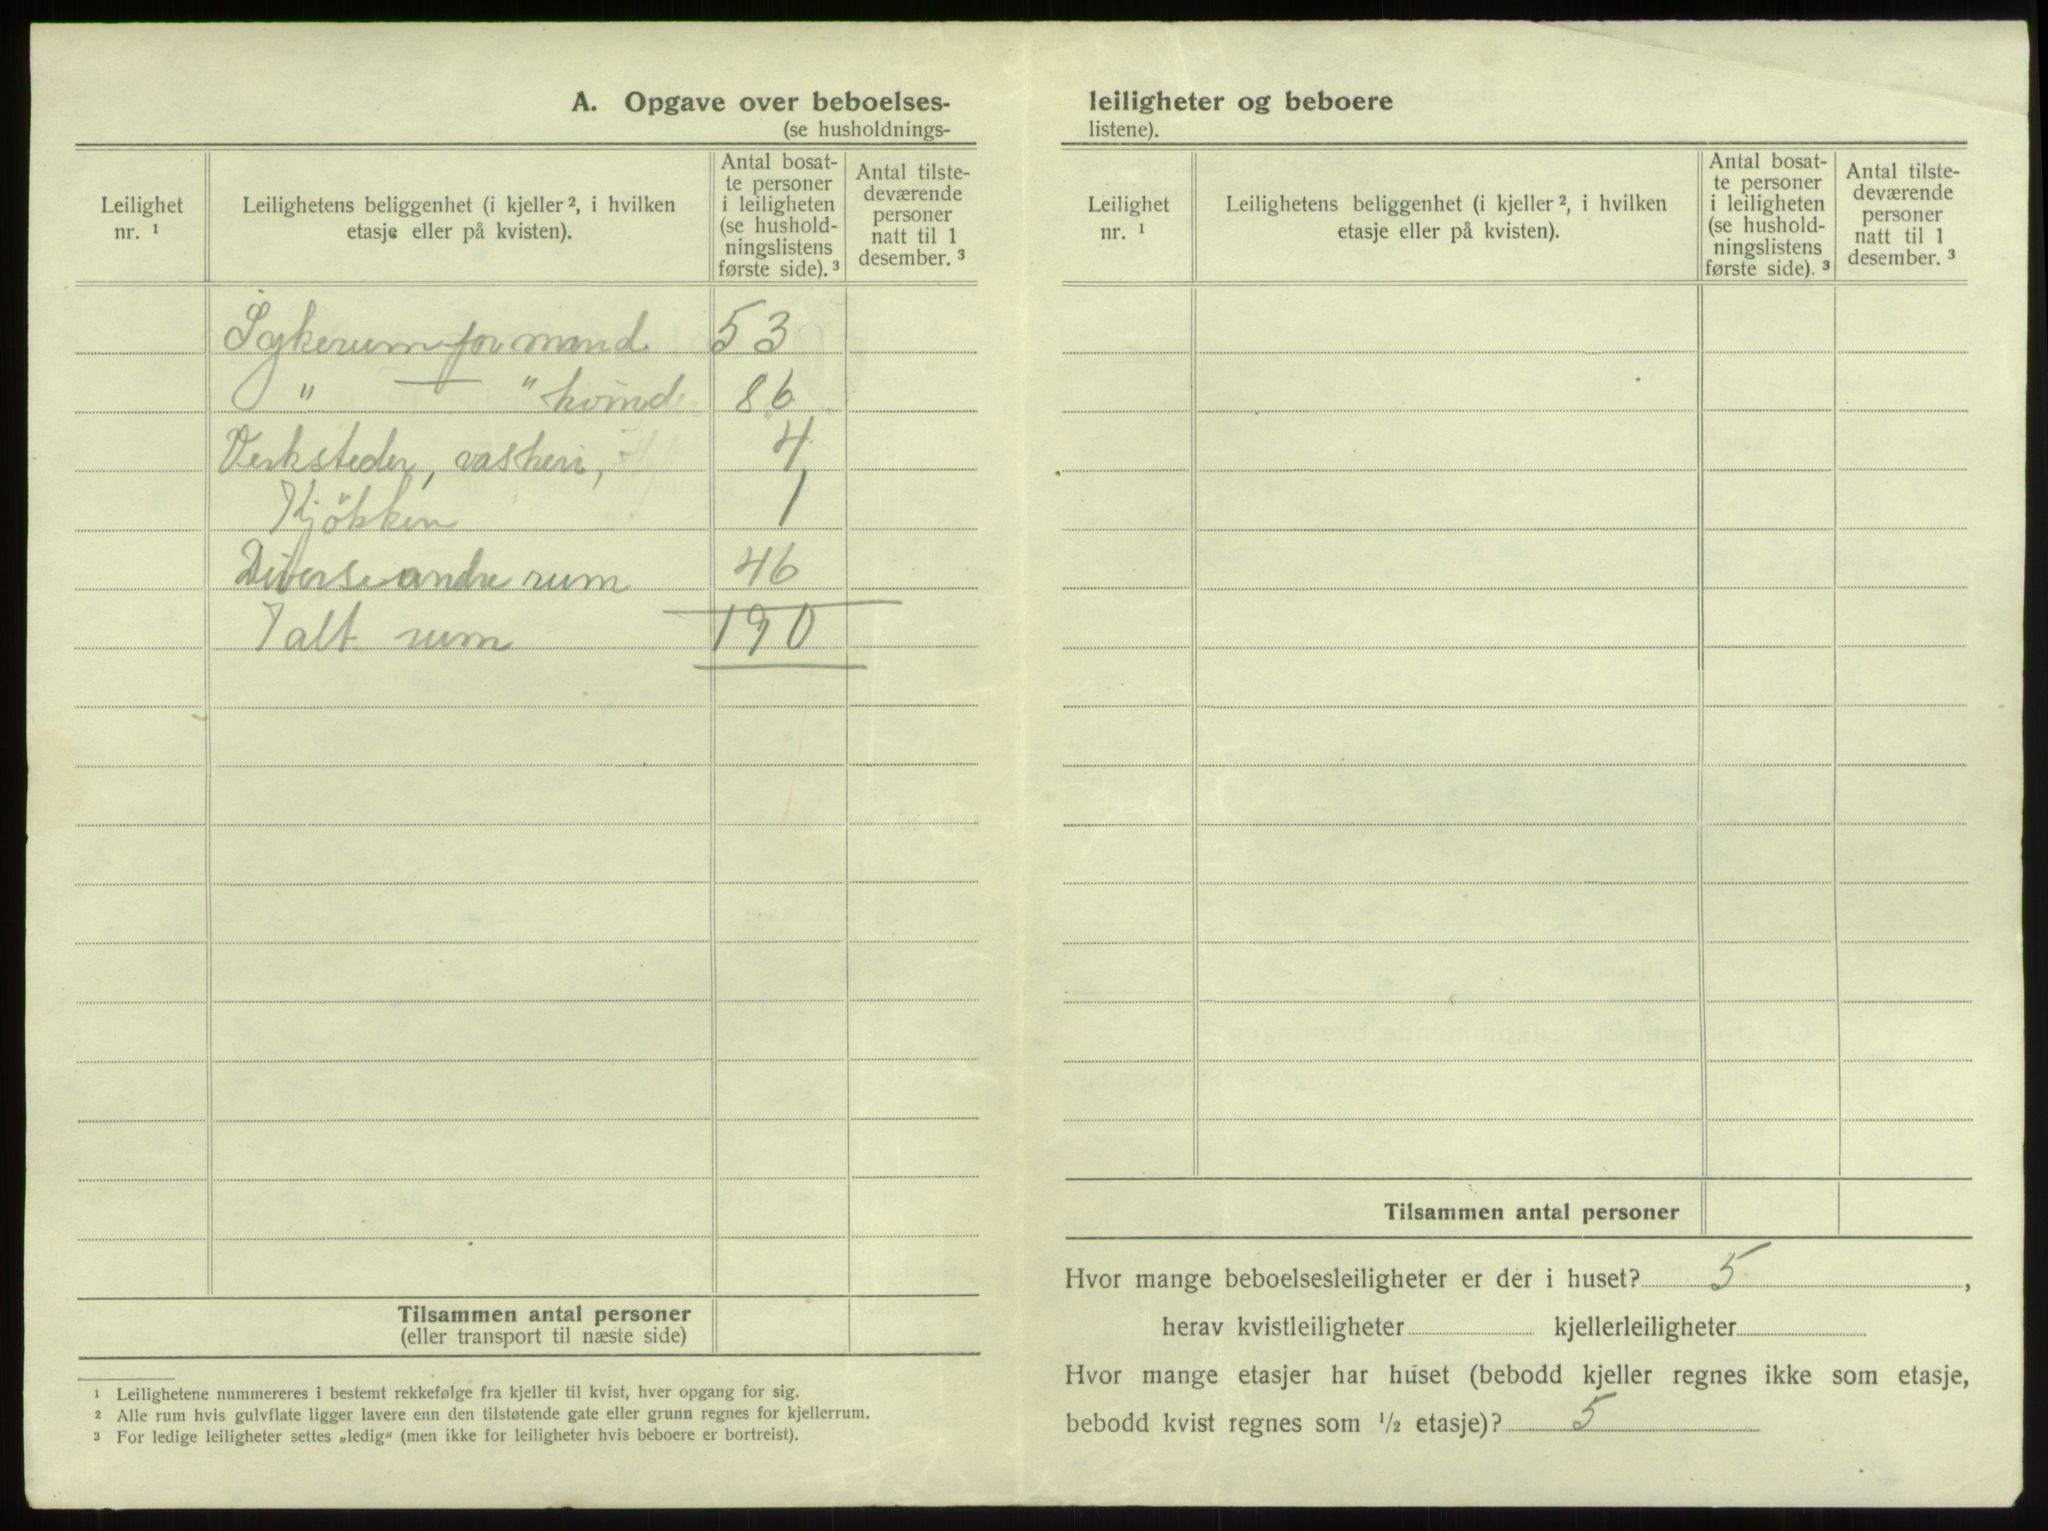 A. Opgave over beboelses-
(se husholdnings-
Leilighet nr. ¹
Leilighetens beliggenhet (i kjeller ², i hvilken etasje eller på kvisten).
Antal bosat-
te personer
i leiligheten
(se hushold-
ningslistens
første side). ³
Antal tilste-
deværende
personer
natt til 1
desember. ³
Sykerum for mænd 53
" — " kvind 86
Verksteder, vaskeri, 4
Kjökken 1
Diverse andre rum 46
Ialt rum 190
Tilsammen antal personer
(eller transport til næste side)
¹ Leilighetene nummereres i bestemt rekkefølge fra kjeller til kvist, hver opgang for sig.
² Alle rum hvis gulvflate ligger lavere enn den tilstøtende gate eller grunn regnes for kjellerrum.
³ For ledige leiligheter settes „ledig“ (men ikke for leiligheter hvis beboere er bortreist).
leiligheter og beboere
listene).
Leilighet nr. ¹
Leilighetens beliggenhet (i kjeller ², i hvilken etasje eller på kvisten).
Antal bosat-
te personer
i leiligheten
(se hushold-
ningslistens
første side). ³
Antal tilste-
deværende
personer
natt til 1
desember. ³
Tilsammen antal personer
Hvor mange beboelsesleiligheter er der i huset? 5,
herav kvistleiligheter kjellerleiligheter
Hvor mange etasjer har huset (bebodd kjeller regnes ikke som etasje,
bebodd kvist regnes som ½ etasje)? 5